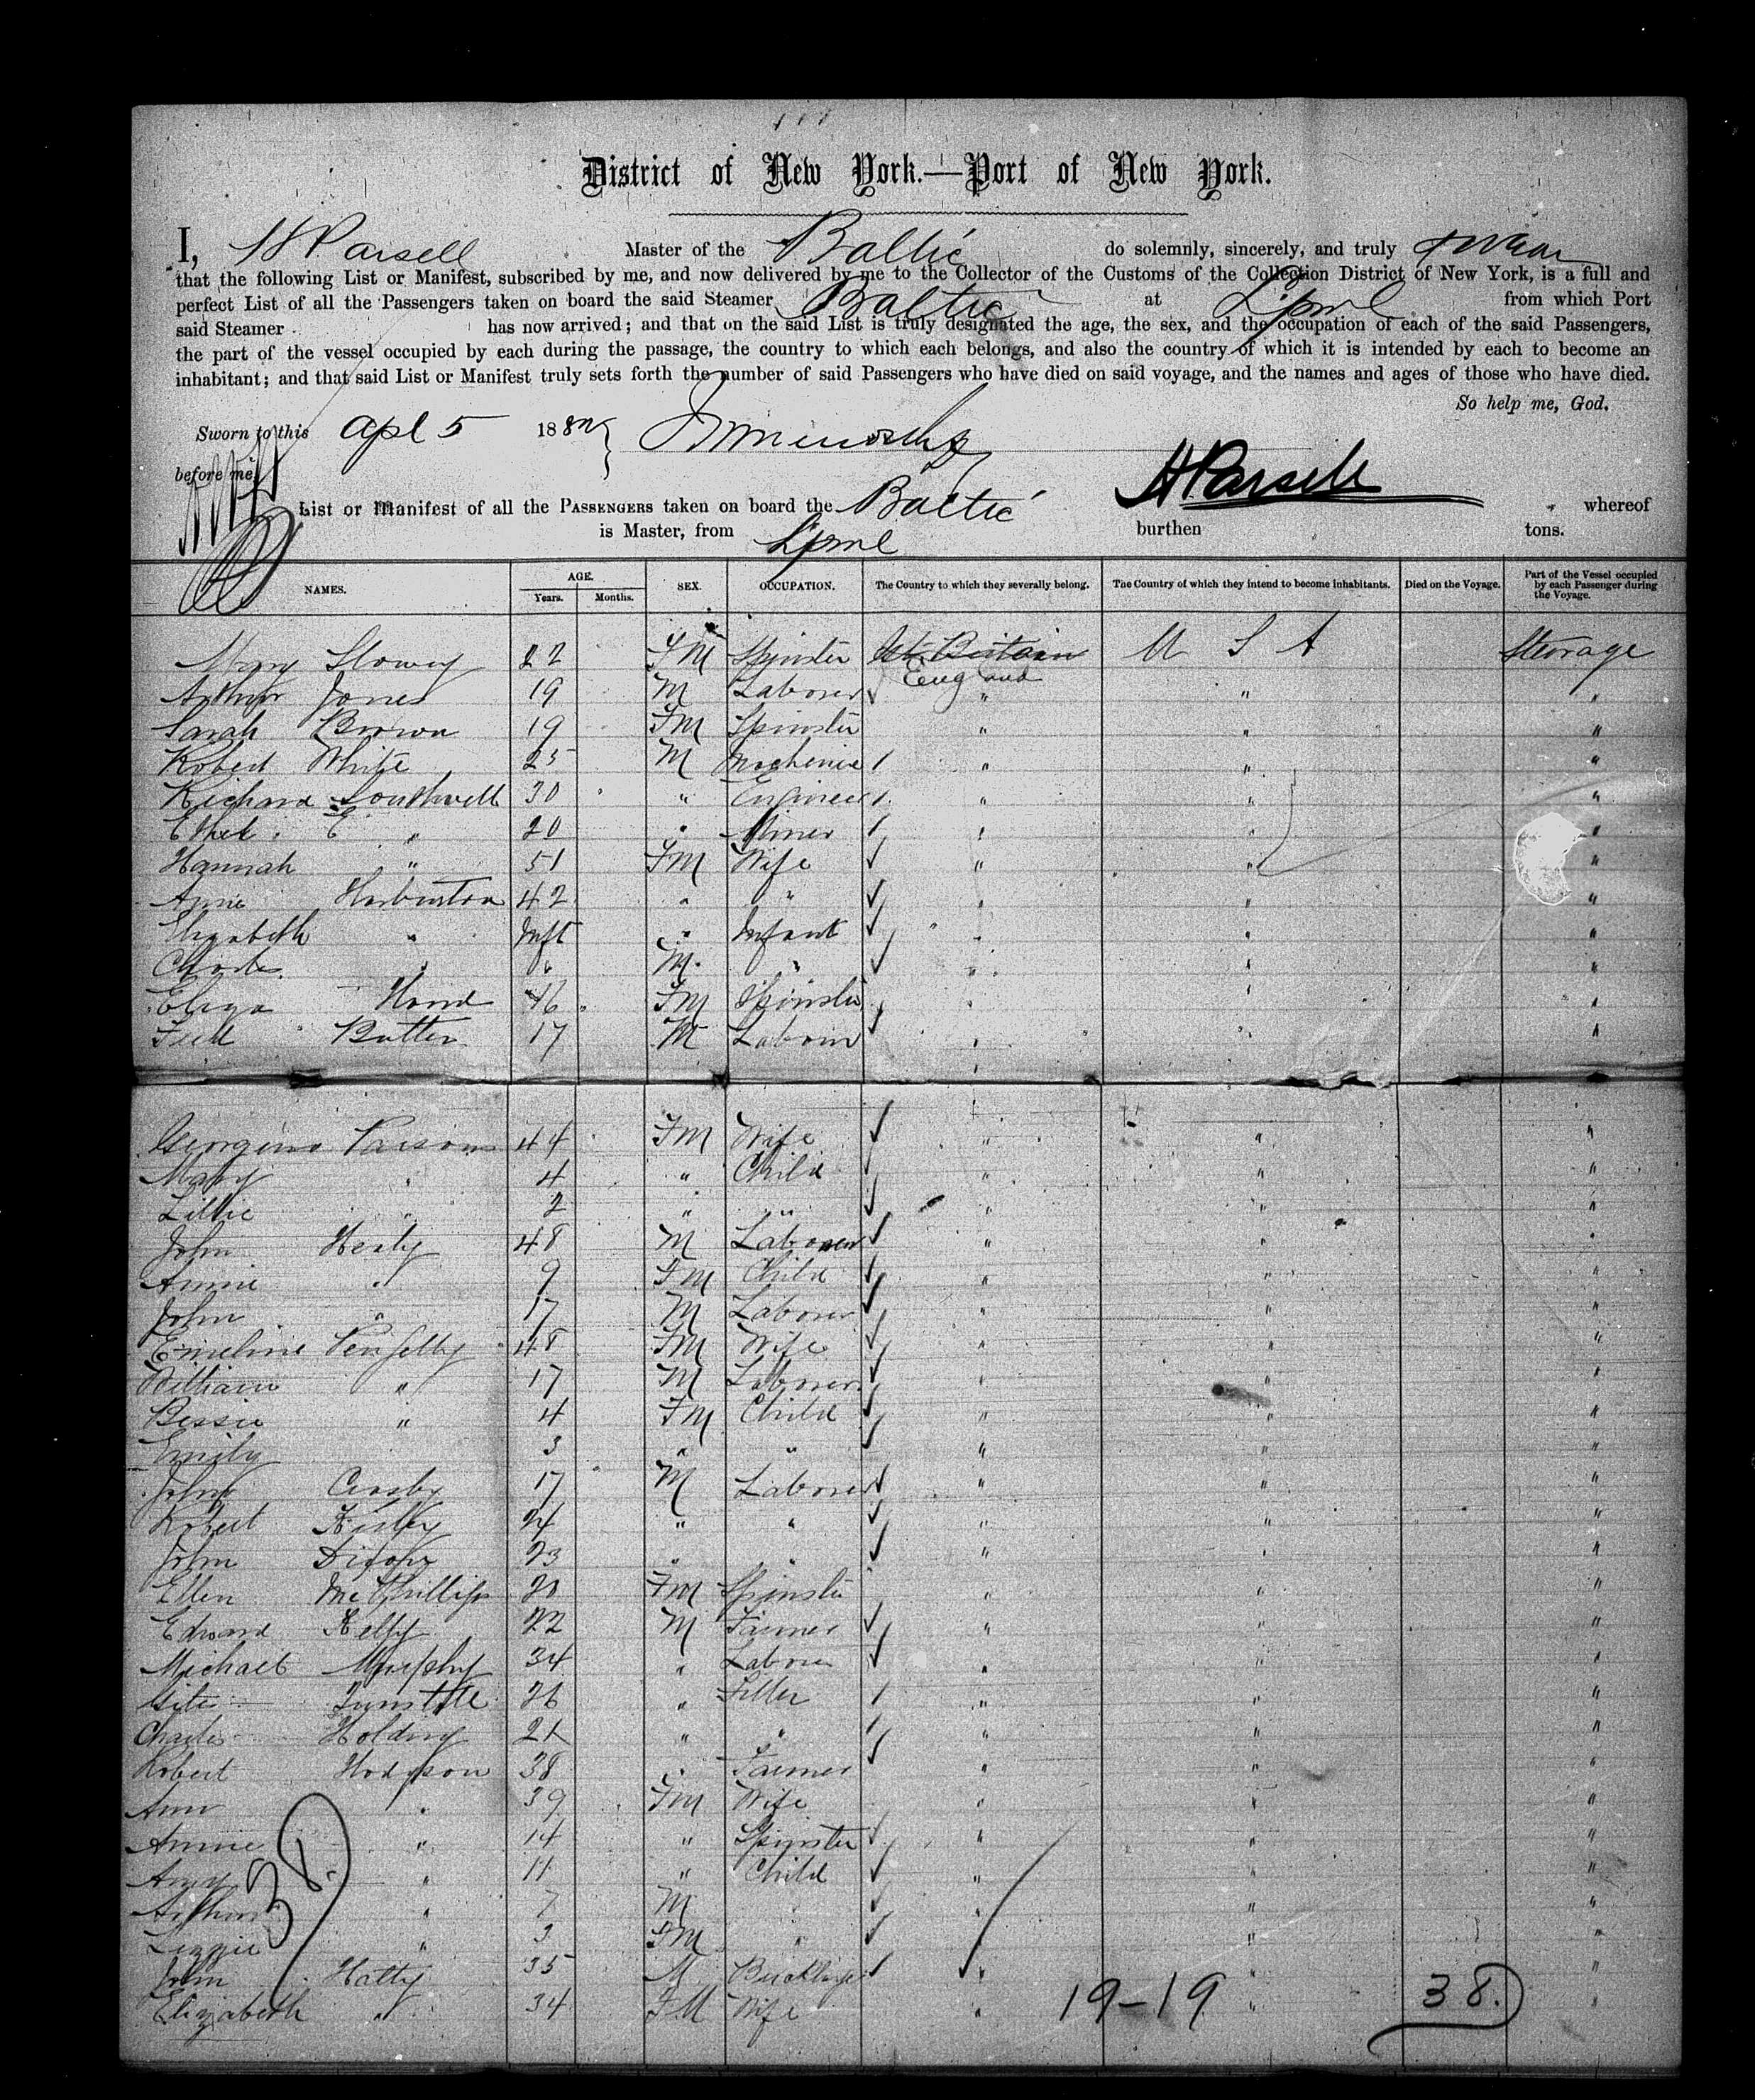 District of New York.—Port of New York.
I, H Parsell Master of the Baltic do solemnly, sincerely, and truly swear
that the following List or Manifest, subscribed by me, and now delivered by me to the Collector of the Customs of the Collection District of New York, is a full and
perfect List of all the Passengers taken on board the said Steamer Baltic at Lpool from which Port
said Steamer has now arrived; and that on the said List is truly designated the age, the sex, and the occupation of each of the said Passengers,
the part of the vessel occupied by each during the passage, the country to which each belongs, and also the country of which it is intended by each to become an
inhabitant; and that said List or Manifest truly sets forth the number of said Passengers who have died on said voyage, and the names and ages of those who have died.
So help me, God.
Sworn to this Apl 5 188
before me H Parsell
List or Manifest of all the PASSENGERS taken on board the Baltic whereof
is Master, from Lpool burthen tons.
NAMES. AGE. Years. Months. SEX. OCCUPATION. The Country to which they severally belong. The Country of which they intend to become inhabitants. Died on the Voyage. Part of the Vessel occupied by each Passenger during the Voyage.
Mary 22 FM Spinster Gt Britain U S A Steerage
England
Arthur Jones 19 M Laborer " " "
Sarah Brown 19 FM Spinster " " "
Robert White 25 M Mechanic " " "
Richard Southwell 30 " Engineer " " "
E " 20 " Miner " " "
Hannah " 51 FM Wife " " "
Annie 42 " " " " "
Elizabeth " Inft " Infant " " "
Charles " " M " " " "
Eliza Hand 46 FM Spinster " " "
Fred 17 M Laborer " " "
Georgina Parsons 44 FM Wife " " "
Mary " 4 " Child " " "
Lillie " 2 " " " " "
John Healy 48 M Laborer " " "
Annie " 9 FM Child " " "
John " 17 M Laborer " " "
Emeline 48 FM Wife " " "
William " 17 M Laborer " " "
Bessie " 4 FM Child " " "
Emily 3 " " " " "
John 17 M Laborer " " "
Robert 24 " " " " "
John 23 " " " " "
Ellen McPhillips 20 FM Spinster " " "
Edward Kelly 22 M Farmer " " "
Michael Murphy 34 " Laborer " " "
26 " " " "
Charles Holding 21 " " " " "
Robert Hodgson 38 " Farmer " " "
Ann " 39 FM Wife " " "
Annie " 14 " Spinster " " "
Amy " 11 " Child " " "
Arthur " 7 M " " " "
Lizzie " 3 FM " " " "
John Hatty 35 M " " "
Elizabeth " 34 FM Wife " " "
38
19-19 38.